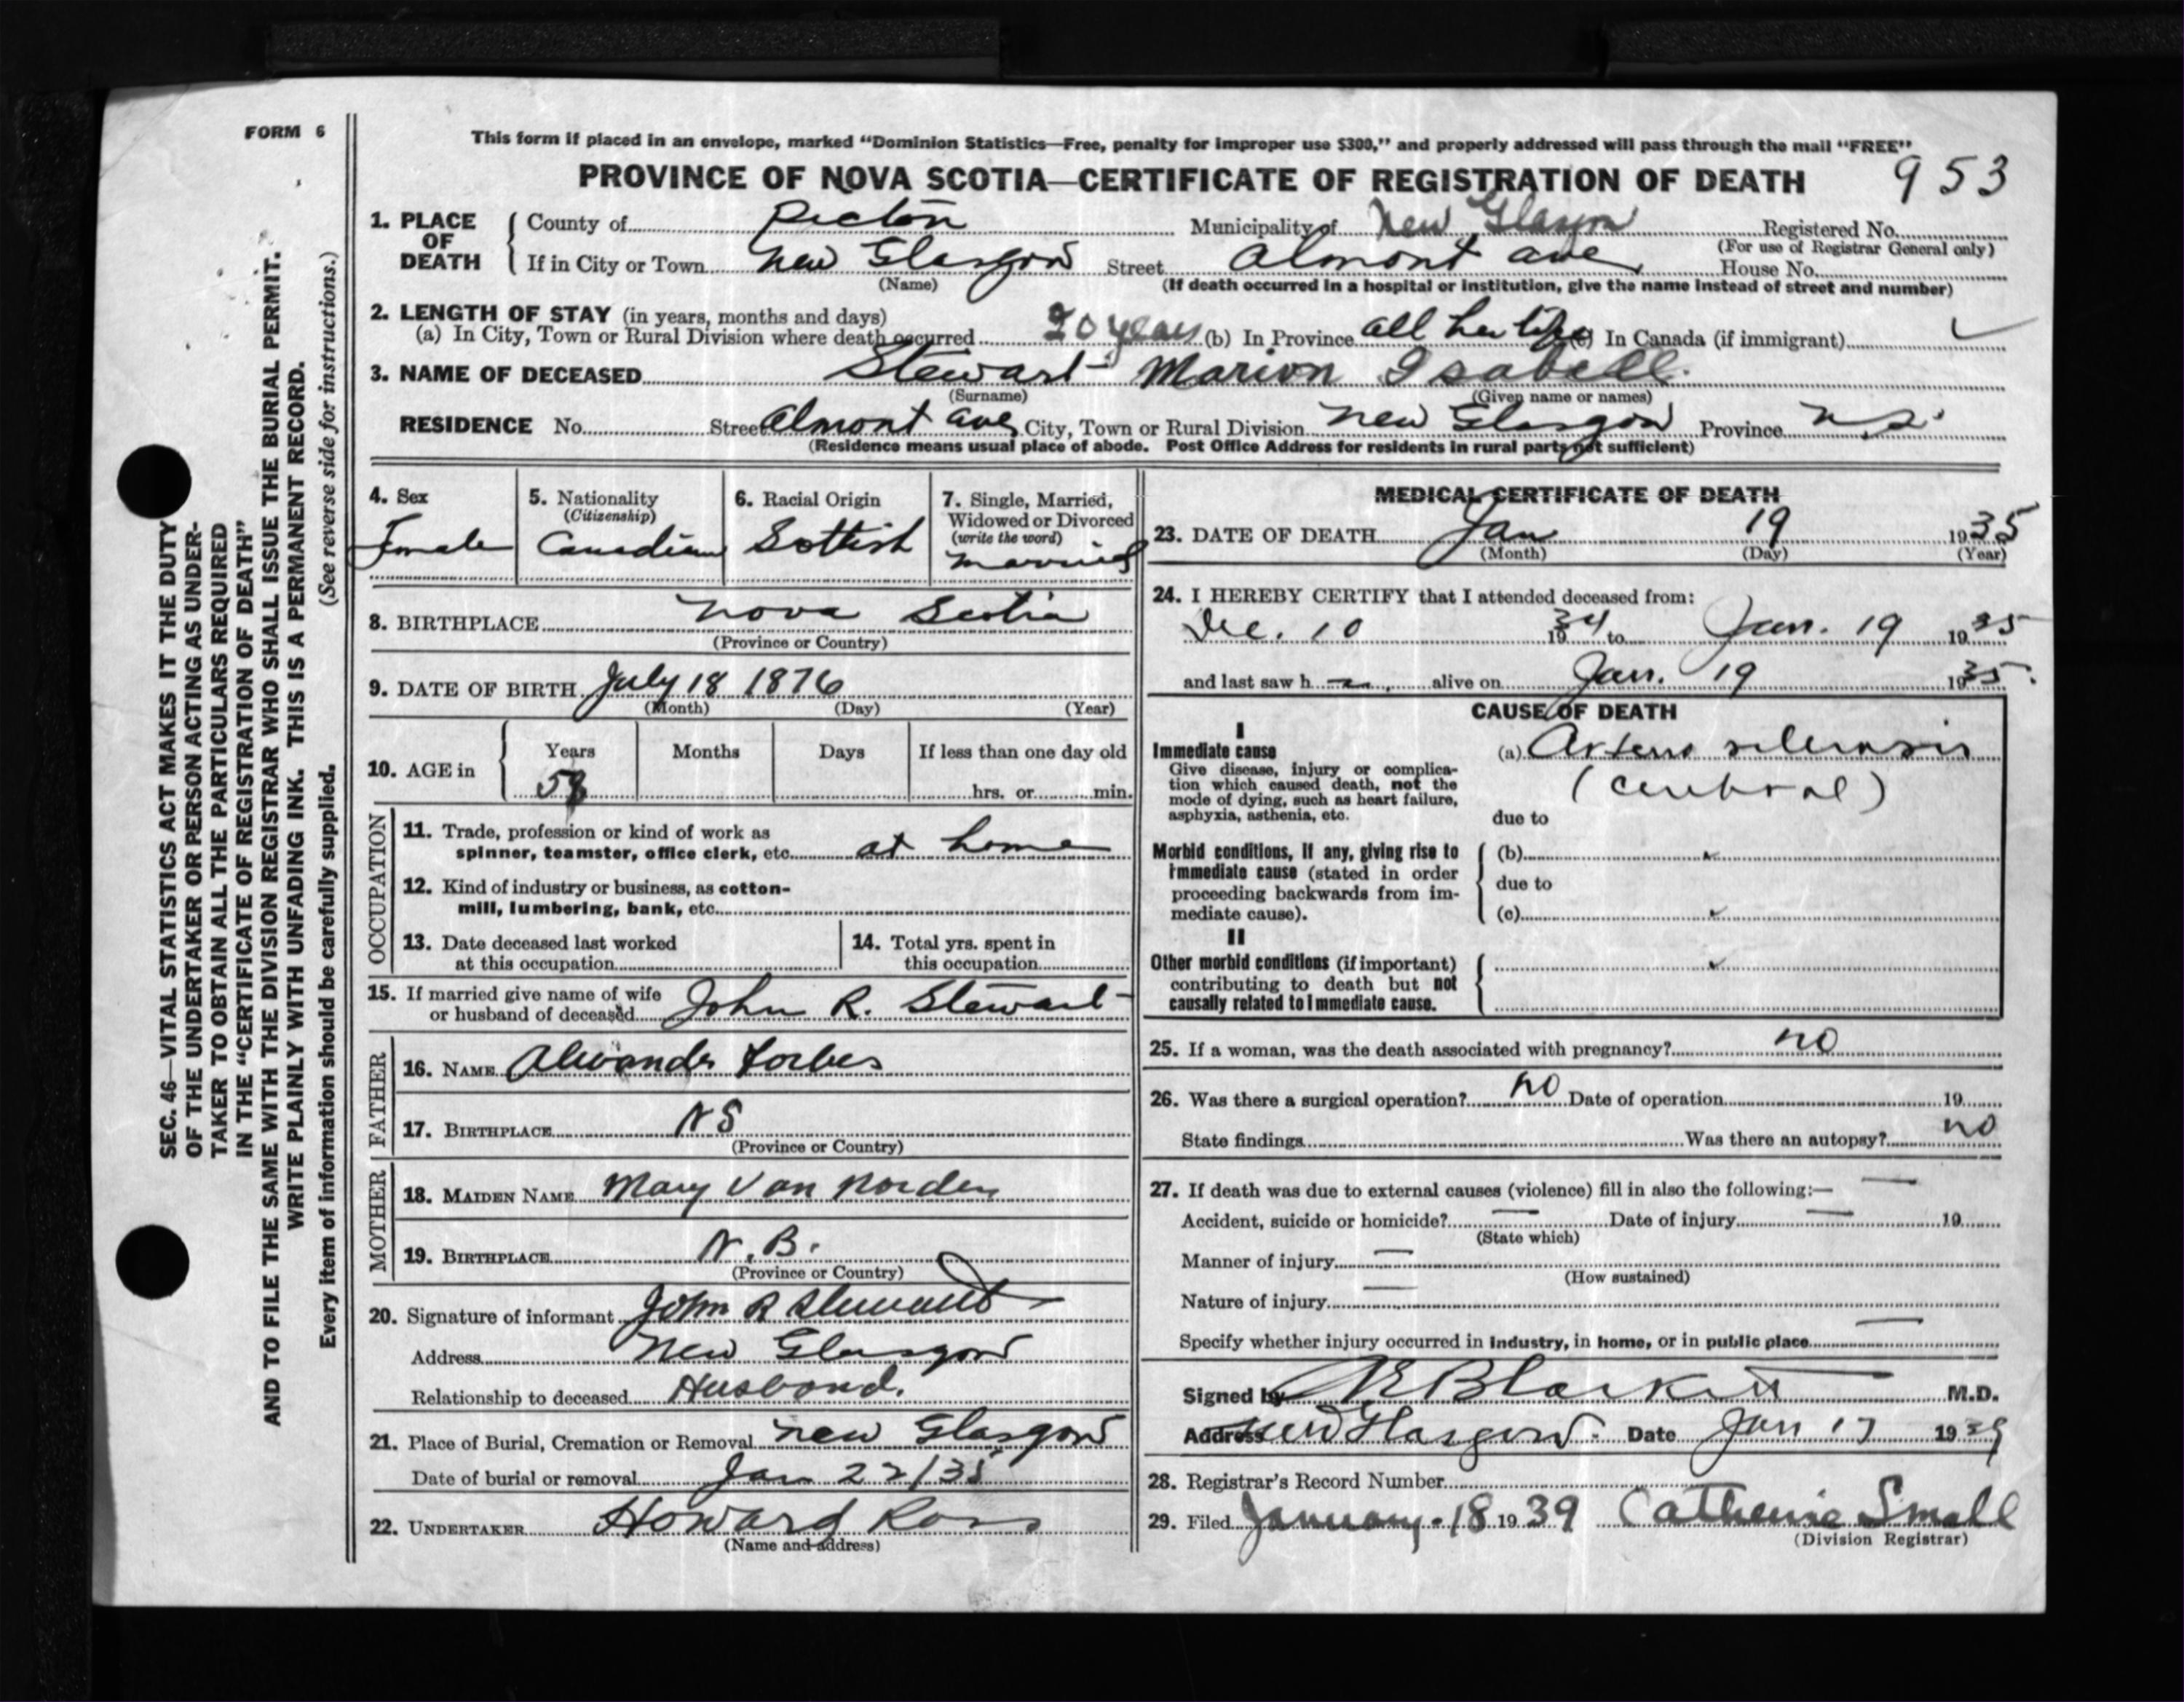 FORM 6
This form if placed in an envelope, marked “Dominion Statistics—Free, penalty for improper use $300,” and properly addressed will pass through the mail “FREE”
PROVINCE OF NOVA SCOTIA—CERTIFICATE OF REGISTRATION OF DEATH 953
1. PLACE OF DEATH County of Pictou Municipality of New Glasgow Registered No.
(For use of Registrar General only)
If in City or Town New Glasgow Street Almont Ave House No.
(Name) (If death occurred in a hospital or institution, give the name instead of street and number)
2. LENGTH OF STAY (in years, months and days)
(a) In City, Town or Rural Division where death occurred 20 years (b) In Province all her life (c) In Canada (if immigrant)
3. NAME OF DECEASED Stewart Marion Isabell
(Surname) (Given name or names)
RESIDENCE No. Street Almont Ave City, Town or Rural Division New Glasgow Province N.S.
(Residence means usual place of abode. Post Office Address for residents in rural parts not sufficient)
4. Sex
Female
5. Nationality
(Citizenship)
Canadian
6. Racial Origin
Scottish
7. Single, Married,
Widowed or Divorced
(write the word)
married
8. BIRTHPLACE Nova Scotia
(Province or Country)
9. DATE OF BIRTH July 18 1876
(Month) (Day) (Year)
10. AGE in Years Months Days If less than one day old
58 hrs. or min.
OCCUPATION
11. Trade, profession or kind of work as
spinner, teamster, office clerk, etc. at home
12. Kind of industry or business, as cotton-
mill, lumbering, bank, etc.
13. Date deceased last worked
at this occupation
14. Total yrs. spent in
this occupation
15. If married give name of wife
or husband of deceased John R. Stewart
FATHER
16. NAME Alexander Forbes
17. BIRTHPLACE NS
(Province or Country)
MOTHER
18. MAIDEN NAME Mary Van Norden
19. BIRTHPLACE N.B.
(Province or Country)
20. Signature of informant John R Stewart
Address New Glasgow
Relationship to deceased Husband.
21. Place of Burial, Cremation or Removal New Glasgow
Date of burial or removal Jan 22/35
22. UNDERTAKER Howard Ross
(Name and address)
MEDICAL CERTIFICATE OF DEATH
23. DATE OF DEATH Jan 19 1935
(Month) (Day) (Year)
24. I HEREBY CERTIFY that I attended deceased from:
Dec. 10 1934 to Jan. 19 1935
and last saw h alive on Jan. 19 1935.
CAUSE OF DEATH
I
Immediate cause
Give disease, injury or complica-
tion which caused death, not the
mode of dying, such as heart failure,
asphyxia, asthenia, etc.
(a) Arterio sclerosis
(cerebral)
due to
Morbid conditions, if any, giving rise to
immediate cause (stated in order
proceeding backwards from im-
mediate cause).
(b)
due to
(c)
II
Other morbid conditions (if important)
contributing to death but not
causally related to immediate cause.
25. If a woman, was the death associated with pregnancy? no
26. Was there a surgical operation? no Date of operation 19
State findings Was there an autopsy? no
27. If death was due to external causes (violence) fill in also the following:— —
Accident, suicide or homicide? — Date of injury — 19
(State which)
Manner of injury —
(How sustained)
Nature of injury —
Specify whether injury occurred in industry, in home, or in public place —
Signed by Blackett M.D.
Address New Glasgow. Date Jan 17 1939
28. Registrar's Record Number
29. Filed January 18 1939 Catherine Small
(Division Registrar)
SEC. 46—VITAL STATISTICS ACT MAKES IT THE DUTY
OF THE UNDERTAKER OR PERSON ACTING AS UNDER-
TAKER TO OBTAIN ALL THE PARTICULARS REQUIRED
IN THE “CERTIFICATE OF REGISTRATION OF DEATH”
AND TO FILE THE SAME WITH THE DIVISION REGISTRAR WHO SHALL ISSUE THE BURIAL PERMIT.
WRITE PLAINLY WITH UNFADING INK. THIS IS A PERMANENT RECORD.
Every item of information should be carefully supplied. (See reverse side for instructions.)